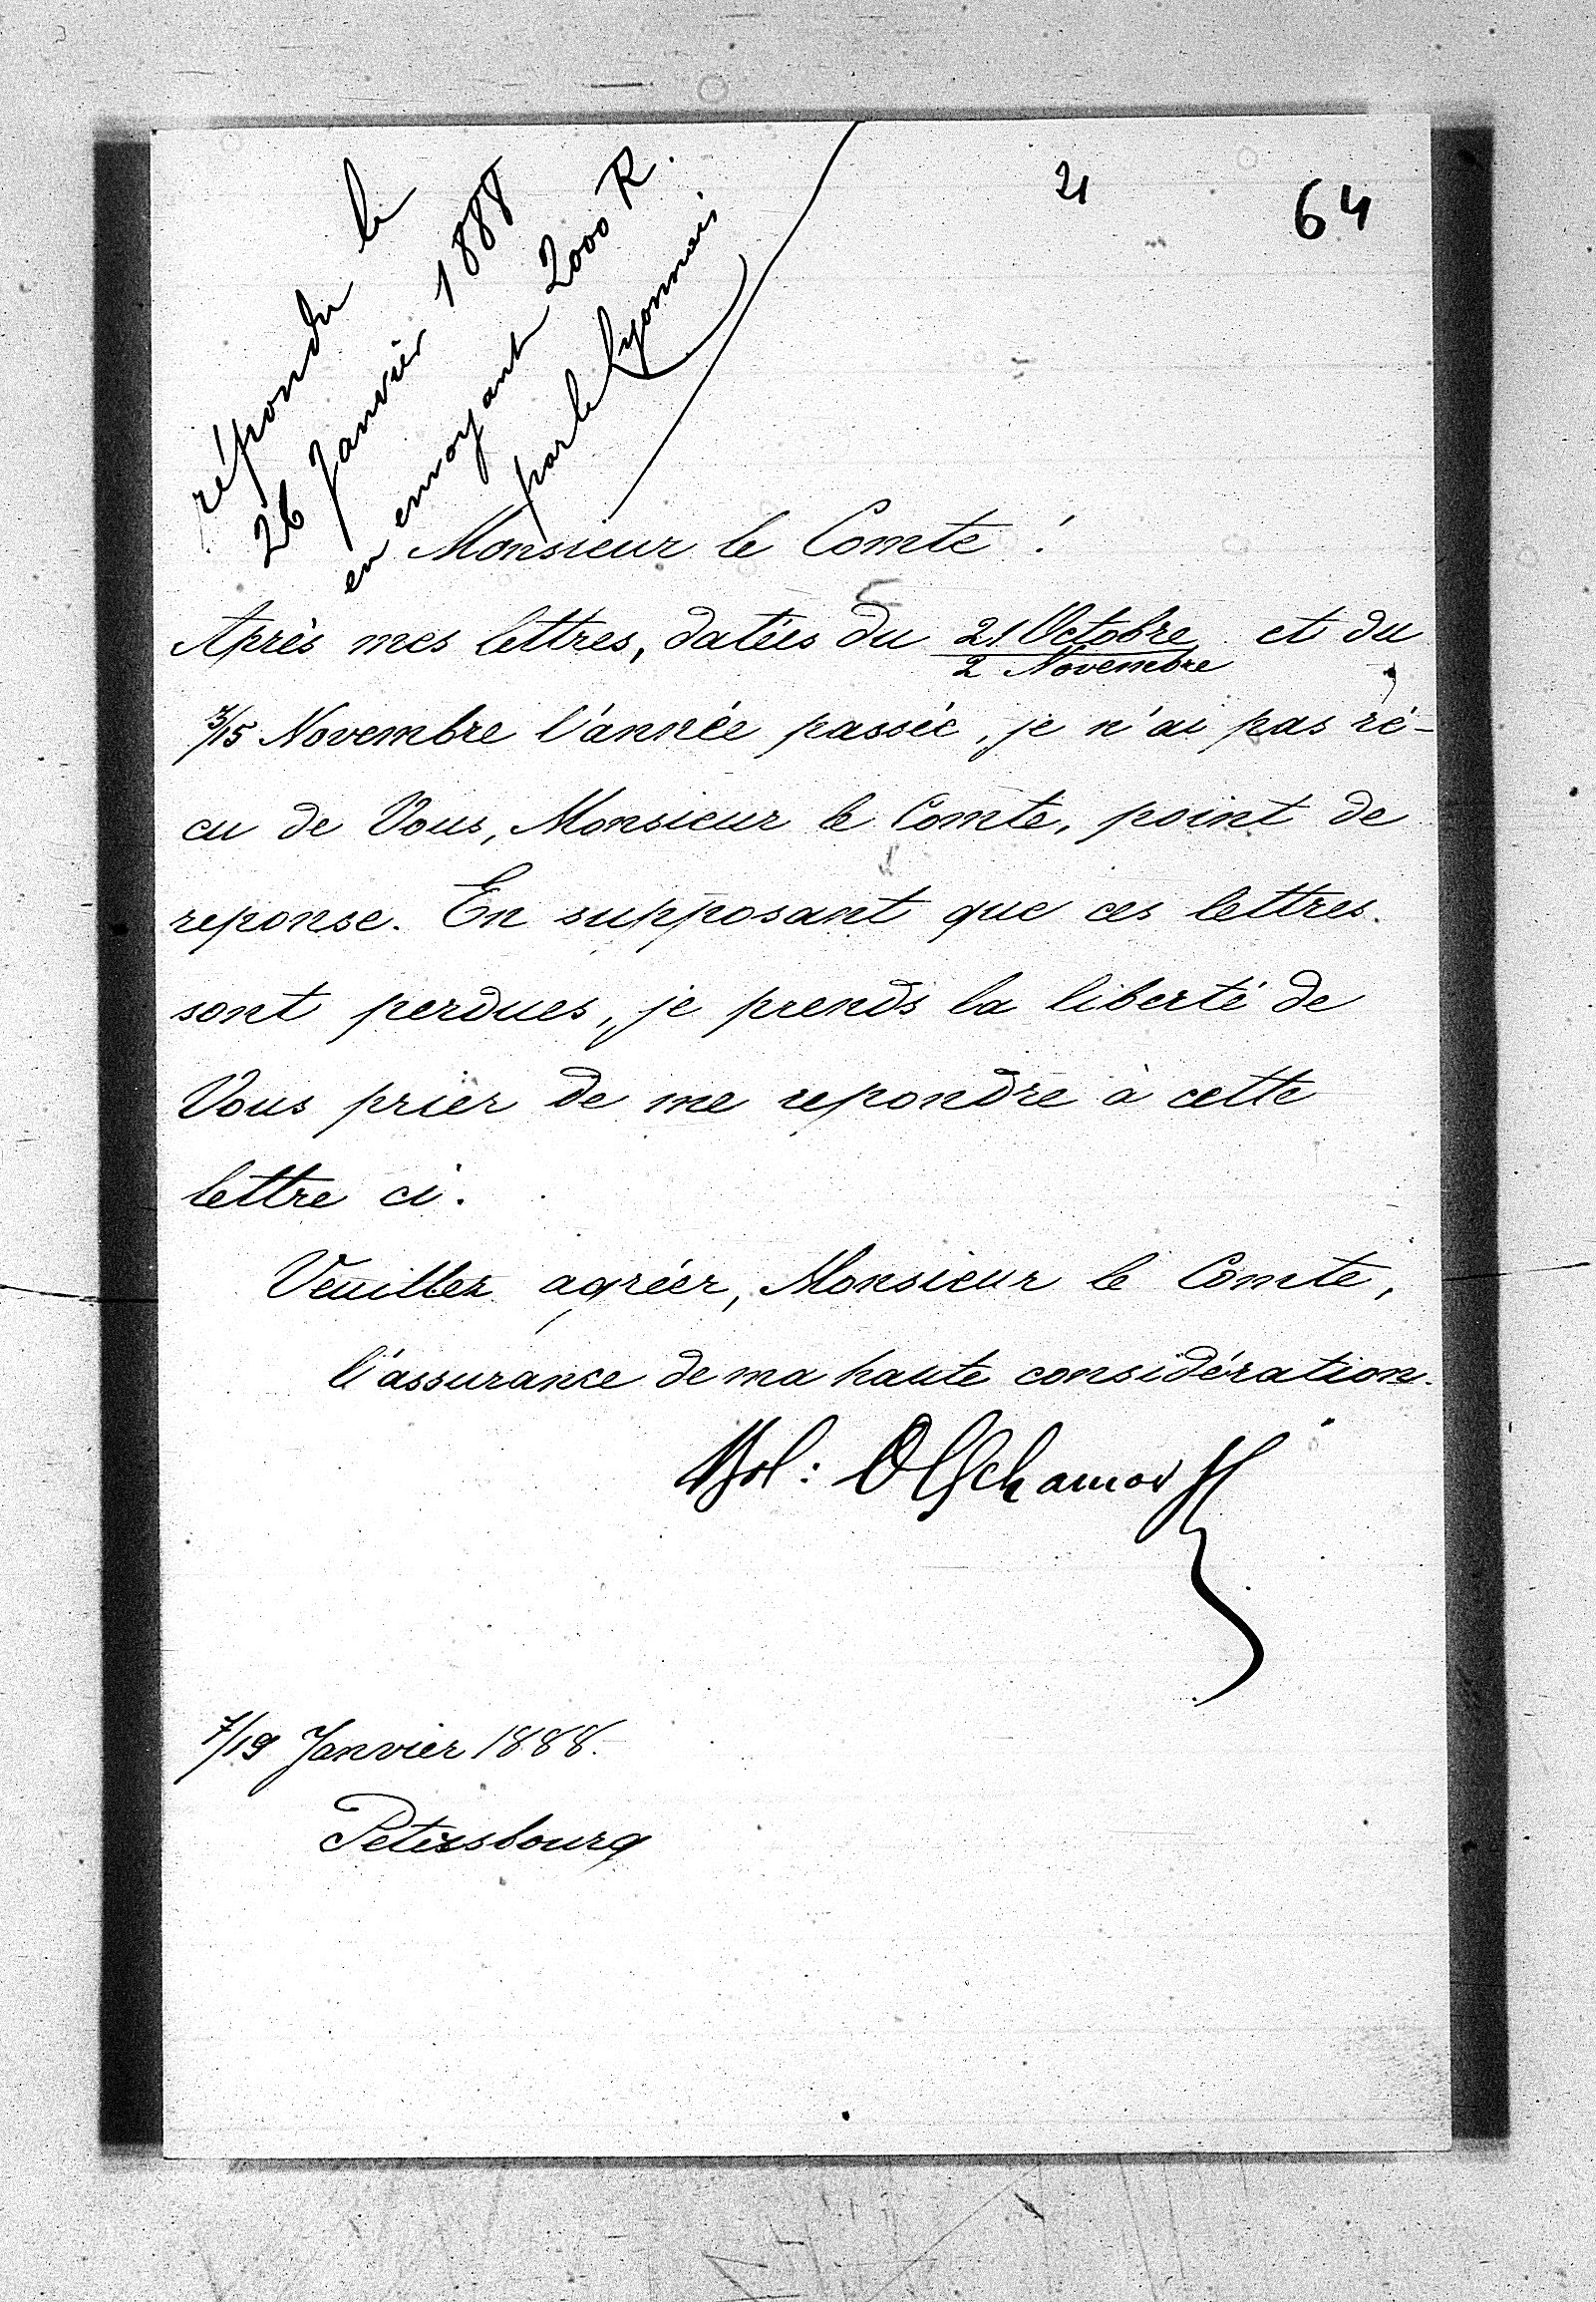 21
64
répondu le
26 Janvier 1888
en envoyant 2000 R.
par le Lyonnais
Monsieur le Comte!
Après mes lettres, datées du 21 Octobre et du
2 Novembre
3/15 Novembre l'année passée, je n'ai pas ré-
cu de Vous, Monsieur le Comte, point de
reponse. En supposant que ces lettres
sont perdues, je prends la liberté de
Vous prier de me repondre à cette
lettre ci.
Veuillez agréer, Monsieur le Comte,
l'assurance de ma haute considération.
7/19 Janvier 1888.
Petersbourg